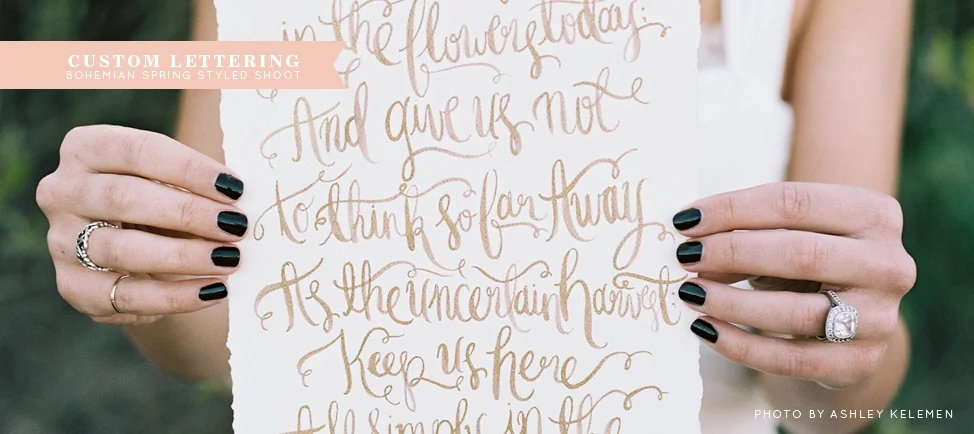 in the flowers today;
CUSTOM LETTERING
BOHEMIAN SPRING STYLED SHOOT
And give us not
to think so far Away
As the uncertain harvest;
Keep us here
All simply in the
PHOTO BY ASHLEY KELEMEN